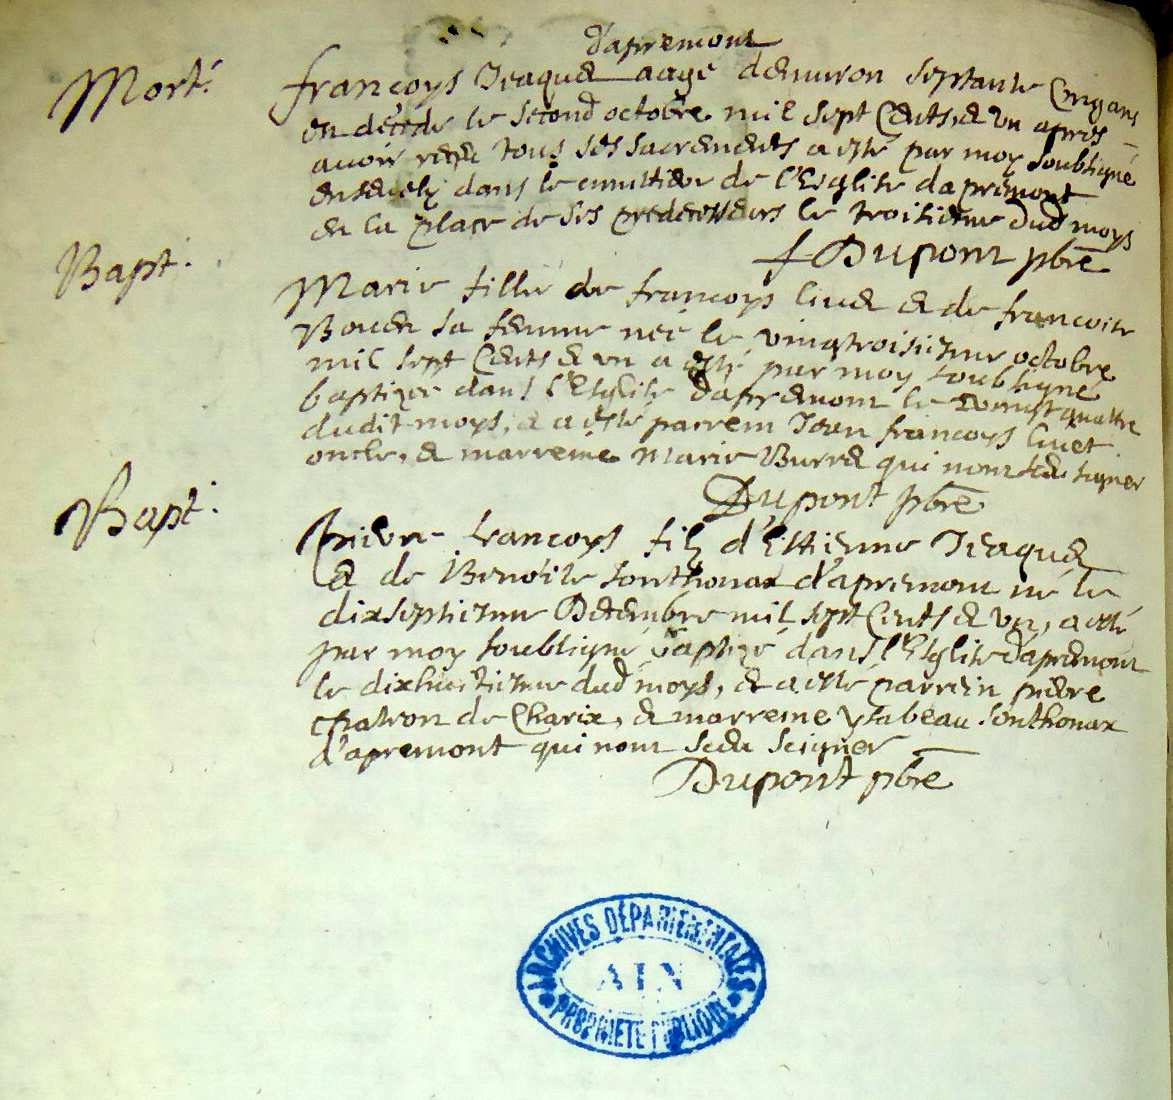 d'apremont
Mort.
françoys Jeaques aagé d'enuiron septante Cinq ans
est décédé le second octobre mil sept Cents et un apres
auoir reçeu tous ses sacrements a esté par moy soubsigné
enseuely dans le cimitiere de l'Esglise d'apremont
en la place de ses predecesseurs le troisieme dud moys
Dupont pbre
Bapt.
Marie fille de françoys et de françoise
sa femme née le vingtroisieme octobre
mil sept Cents et un a esté par moy soubsigné
baptizée dans l'Esglise d'apremont le vingtquattre
dudit moys, et a esté parrein Jean françoys
oncle, et marreine Marie qui n'ont sceu signer
Dupont pbre
Bapt.
Pierre françoys filz d'Estienne Jeaques
et de Benoite Sonthonax d'apremont né le
dixseptieme Decembre mil sept Cents et un, a esté
par moy soubsigné baptizé dans l'Esglise d'apremont
le dixhuictieme dud moys, et a esté parrein pierre
patron de Charix, et marreine ysabeau Sonthonax
d'apremont qui n'ont sceu seigner
Dupont pbre
ARCHIVES DÉPARTEMENTALES
AIN
PROPRIETE PUBLIQUE